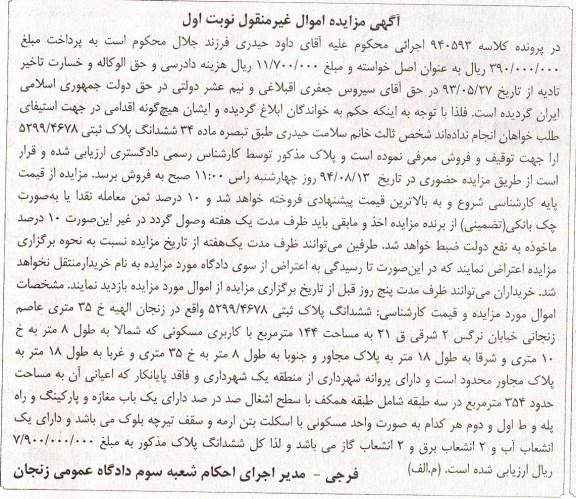 آگهی مزایده اموال غیرمنقول نوبت اول
در پرونده کلاسه ۹۴۰۵۹۳ اجرائی محکوم علیه آقای داود حیدری فرزند جلال محکوم است به پرداخت مبلغ
۳۹۰/۰۰۰/۰۰۰ ریال به عنوان اصل خواسته و مبلغ ۱۱/۷۰۰/۰۰۰ ریال هزینه دادرسی و حق الوکاله و خسارت تاخیر
تادیه از تاریخ ۹۳/۰۵/۲۷ در حق آقای سیروس جعفری اقبلاغی و نیم عشر دولتی در حق دولت جمهوری اسلامی
ایران گردیده است. فلذا با توجه به اینکه حکم به خواندگان ابلاغ گردیده و ایشان هیچ‌گونه اقدامی در جهت استیفای
طلب خواهان انجام نداده‌اند شخص ثالث خانم سلامت حیدری طبق تبصره ماده ۳۴ ششدانگ پلاک ثبتی ۵۲۹۹/۴۶۷۸
ارا جهت توقیف و فروش معرفی نموده است و پلاک مذکور توسط کارشناس رسمی دادگستری ارزیابی شده و قرار
است از طریق مزایده حضوری در تاریخ ۹۴/۰۸/۱۳ روز چهارشنبه راس ۱۱:۰۰ صبح به فروش برسد. مزایده از قیمت
پایه کارشناسی شروع و به بالاترین قیمت پیشنهادی فروخته خواهد شد و ۱۰ درصد ثمن معامله نقدا یا به‌صورت
چک بانکی(تضمینی) از برنده مزایده اخذ و مابقی باید ظرف مدت یک هفته وصول گردد در غیر این‌صورت ۱۰ درصد
ماخوذه به نفع دولت ضبط خواهد شد. طرفین می‌توانند ظرف مدت یک‌هفته از تاریخ مزایده نسبت به نحوه برگزاری
مزایده اعتراض نمایند که در این‌صورت تا رسیدگی به اعتراض از سوی دادگاه مورد مزایده به نام خریدارمنتقل نخواهد
شد. خریداران می‌توانند ظرف مدت پنج روز قبل از تاریخ برگزاری مزایده از اموال مورد مزایده بازدید نمایند. مشخصات
اموال مورد مزایده و قیمت کارشناسی: ششدانگ پلاک ثبتی ۵۲۹۹/۴۶۷۸ واقع در زنجان الهیه خ ۳۵ متری عاصم
زنجانی خیابان نرگس ۲ شرقی ق ۲۱ به مساحت ۱۴۴ مترمربع با کاربری مسکونی که شمالا به طول ۸ متر به خ
۱۰ متری و شرقا به طول ۱۸ متر به پلاک مجاور و جنوبا به طول ۸ متر به خ ۳۵ متری و غربا به طول ۱۸ متر به
پلاک مجاور محدود است و دارای پروانه شهرداری از منطقه یک شهرداری و فاقد پایانکار که اعیانی آن به مساحت
حدود ۳۵۴ مترمربع در سه طبقه شامل طبقه همکف با سطح اشغال صد در صد دارای یک باب مغازه و پارکینگ و راه
پله و ط اول و دوم هر کدام به صورت واحد مسکونی با اسکلت بتن ارمه و سقف تیرچه بلوک می باشد و دارای یک
انشعاب آب و ۲ انشعاب برق و ۲ انشعاب گاز می باشد و لذا کل ششدانگ پلاک مذکور به مبلغ ۷/۹۰۰/۰۰۰/۰۰۰
ریال ارزیابی شده است. (م.الف)
فرجی – مدیر اجرای احکام شعبه سوم دادگاه عمومی زنجان